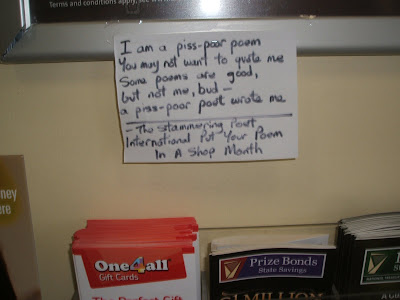 Terms and conditions apply, see
I am a piss-poor poem
You may not want to quote me
Some poems are good,
but not me, bud —
a piss-poor poet wrote me
— The Stammering Poet
International Put Your Poem
In A Shop Month
ney
ere
One4all
Gift Cards
The Perfect Gift
Prize Bonds
State Savings
$1 MILLION